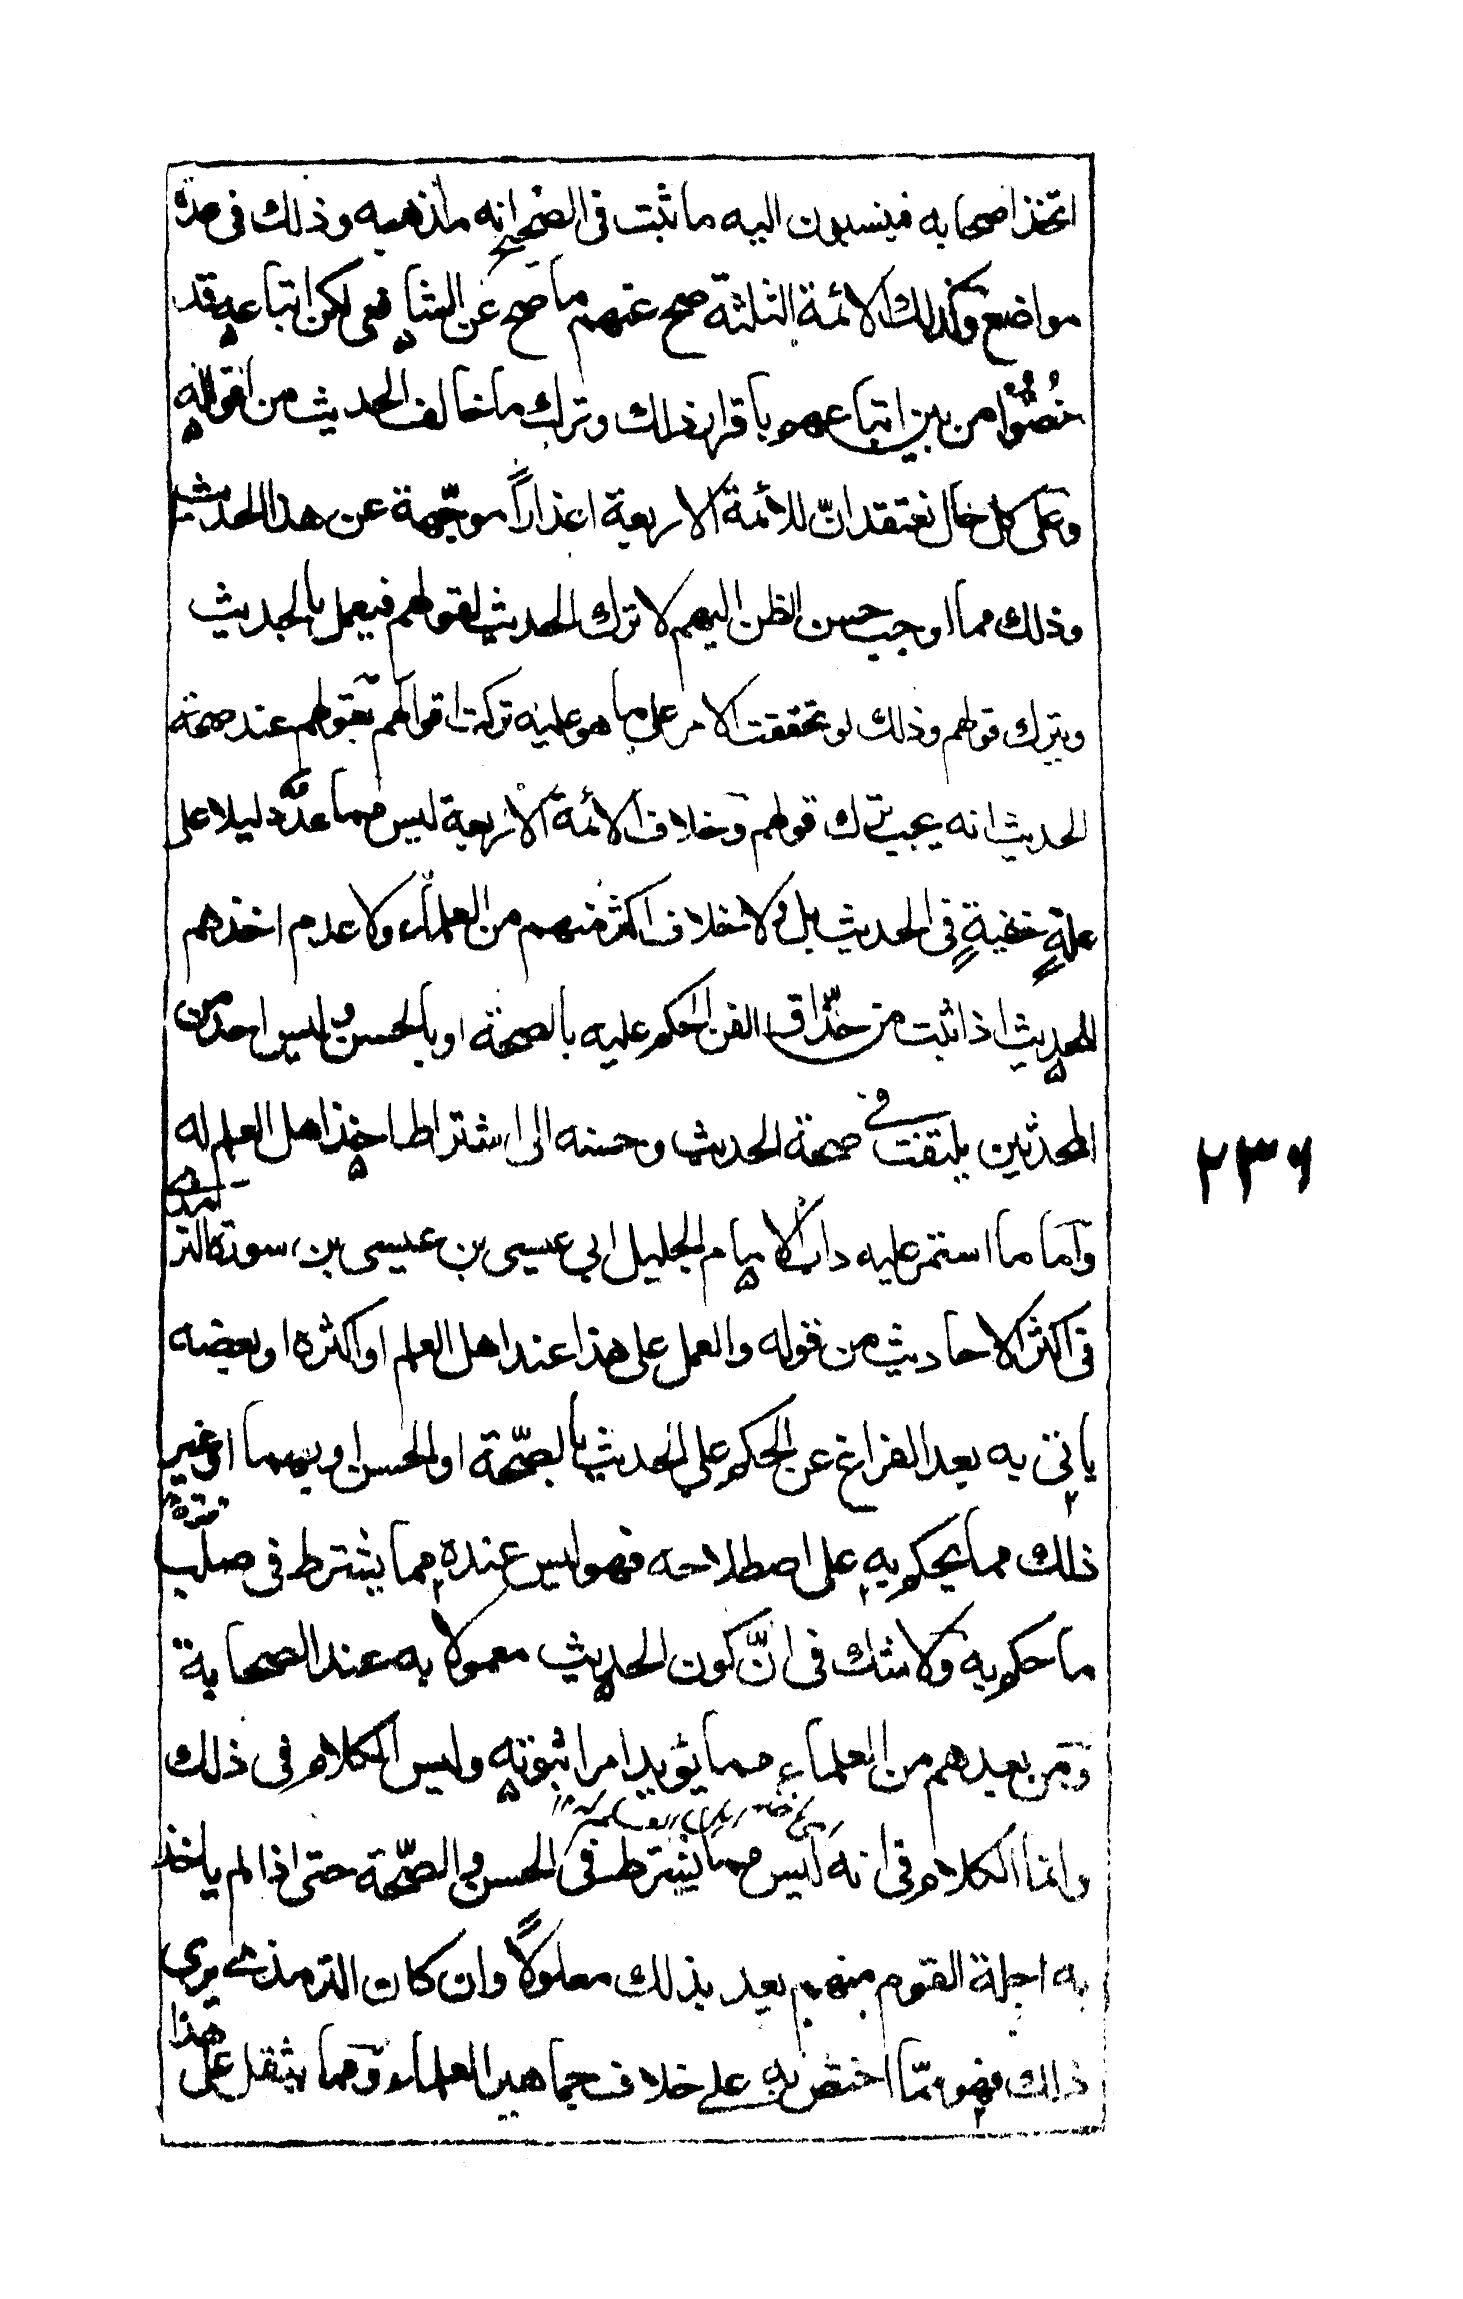 اتخذ اصحابه فينسبون اليه ما ثبت فى الصحيح انه مذهبه وذلك فى عدة
مواضع وكذلك الائمة الثلثة صح عنهم ما صح عن الشافعى لكن اتباعه قد
خُصُّوا من بين اتباعهم باقرار ذلك وترك ما خالف الحديث من اقواله
وعلى كل حال نعتقد انّ للائمة الاربعة اعذاراً موجّهة عن هذا الحديث
وذلك مما اوجب حسن الظن اليهم لا ترك الحديث لقولهم فيعمل بالحديث
ويترك قولهم وذلك لو تحققت الامر على ما هو عليه تركت اقوالهم بقولهم عند صحة
الحديث انه يجب ترك قولهم وخلاف الائمة الاربعة ليس مما عدّه دليلا على
علةٍ خفيةٍ فى الحديث بل ولا خلاف اكثر منهم من العلماء ولا عدم اخذهم
للحديث اذا ثبت من حُذّاق الفن الحكم عليه بالصحة او بالحسن وليس احد من
المحدثين يلتفت فى صحة الحديث وحسنه الى اشتراط اخذ اهل العلم له
واما ما استمر عليه داب الامام الجليل ابي عيسى بن عيسى بن سورة الترمذى
فى اكثر الاحاديث من قوله والعمل على هذا عند اهل العلم او اكثره او بعضه
ياتى به بعد الفراغ عن الحكم على الحديث بالصحّة او الحسن او بهما او غير
ذلك مما يحكم به على اصطلاحه فهو ليس عنده مما يشترط فى صلب
ما حكم به ولا شك فى انّ كون الحديث معمولا به عند الصحابة
ومن بعدهم من العلماء مما يؤيد امر ثبوته وليس الكلام فى ذلك
وانما الكلام فى انه ليس مما يشترط فى الحسن والصحّة حتى اذا لم ياخذ
به اجلة القوم منهم يعد بذلك معلولاً وان كان الترمذى يرى
ذلك فهو ممّا اختص به على خلاف جماهير العلماء ومما يثقل على هذا
٢٣٦